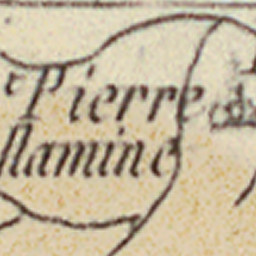 t Pierre
flamine